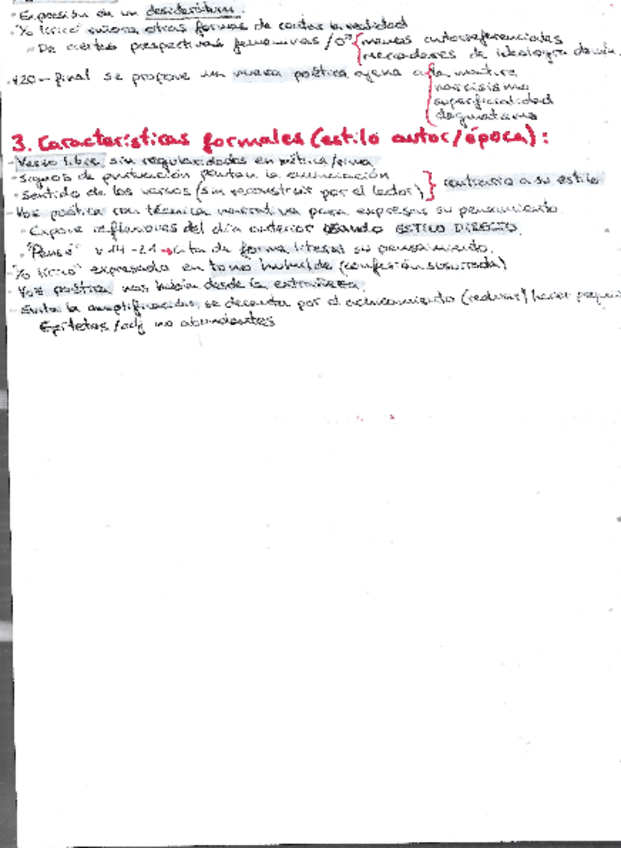 - Expresión de un desiderátum.
- "Yo lírico" otras formas de contar la realidad
- De ciertas perspectivas femeninas / ♂ { menos autorreferenciales
mercaderes de ideología
v20 - final se propone un nueva poética ajena a la { mentira
narcisismo
superficialidad
dogmatismo
3. Características formales (estilo autor/época):
- Verso libre, sin regularidades en métrica/rima
- Signos de puntuación pautan la enunciación
- Sentido de los versos (sin reconstruir por el lector) } contrario a su estilo
- Voz poética con técnica narrativa para expresar su pensamiento.
- Expone reflexiones del día anterior usando ESTILO DIRECTO.
- "Pensé" v 14 - 21 → cita de forma literal su pensamiento.
- "Yo lírico" expresado en tono humilde (confesión susurrada)
- Voz poética nos habla desde la extrañeza.
- Evita la amplificación, se decanta por el (reducir/hacer
Epítetos / adj no abundantes